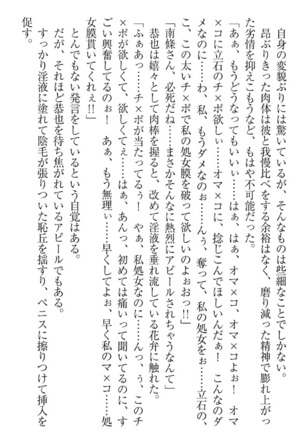 自身の変貌ぶりには驚いているが、そんなものは些細なことでしかない。
昂ぶりきった肉体は彼と我慢比べをする余裕はなく、磨り減った精神で膨れ上がっ
た劣情を抑えこもうなど、もはや不可能だった。
「あぁ、もうどうなってもいい……はぁ、はぁ、オマ×コ、オマ×コよぉ！　オマ
×コに立石のチ×ポ欲しいぃ……オマ×コに、捻じこんでほしいんだぁ！　こんなのダ
メなのに……わ、私、もうダメなのぉ……んぅ、奪って、私の処女を……立石の、
こ、この太いチ×ポで私の処女膜を破って欲しいのよぉおっ!!」
「南條さん、必死だね……まさかそんなに熱烈にアピールされちゃうなんて」
恭也は嬉々として肉棒を握ると、改めて淫液を垂れ流している花弁に触れた。
「ふぁぁっ……チ×ポが当たってるぅ！　やぁ、私処女なのに……んぅ、このチ
×ポが欲しくて、欲しくてぇ……はぁ、あんっ、初めては痛いって聞いてるのに、す
ごい興奮してるのぉ！　あぁ、もう無理ぃ……早くしてよぉ、早く私のマ×コ……処
女膜貫いてくれぇ!!」
とんでもない発言をしているという自覚はある。
だが、それほど恭也を待ち焦がれているアピールでもある。
すっかり淫液に塗れて陰毛が張りついた恥丘を揺すり、ペニスに擦りつけて挿入を
促す。